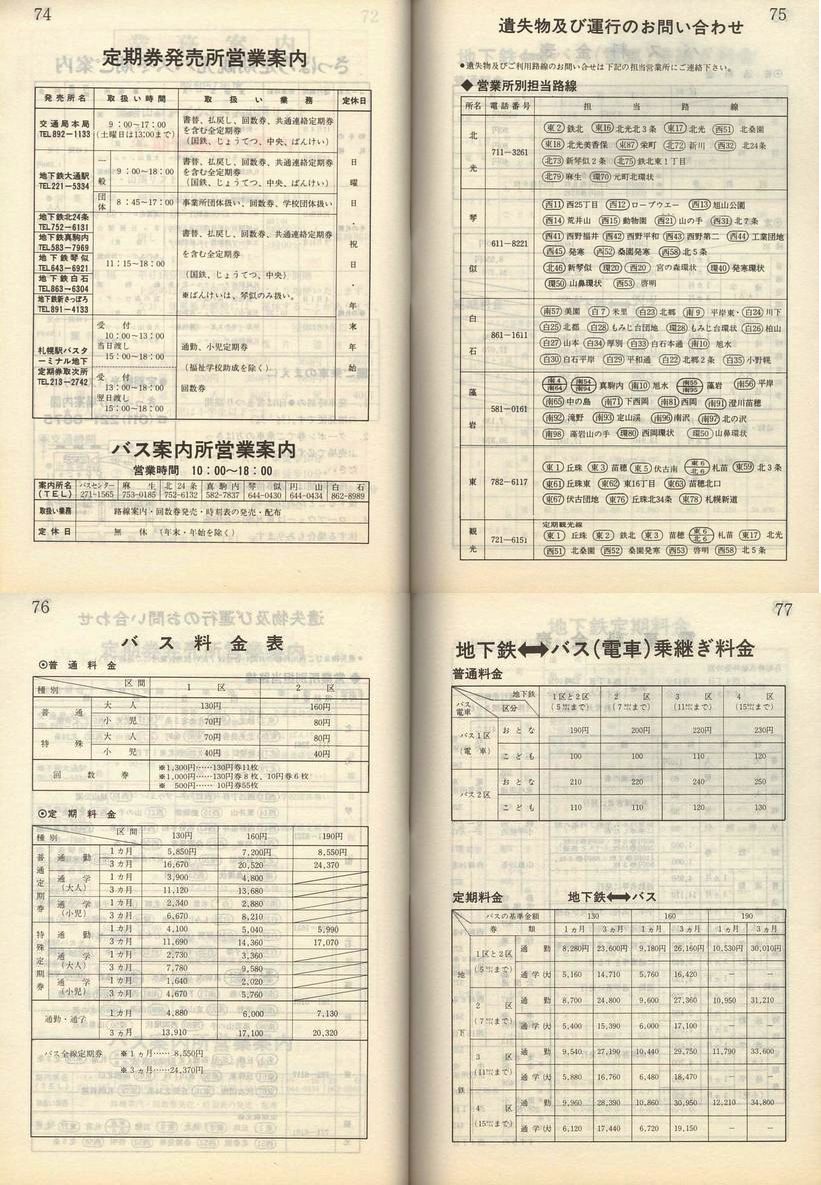 74
定期券発売所営業案内
発売所名 取扱い時間 取扱い業務 定休日
交通局本局 TEL892-1133
9：00〜17：00 (土曜日は13:00まで)
書替、払戻し、回数券、共通連絡定期券
を含む全定期券
(国鉄、じょうてつ、中央、ばんけい)
地下鉄大通駅 TEL221-5334
一般 9：00〜18：00
書替、払戻し、回数券、共通連絡定期券
を含む全定期券
(国鉄、じょうてつ、中央、ばんけい)
団体 8：45〜17：00 事業所団体扱い、回数券、学校団体扱い
地下鉄北24条
TEL752-6131
地下鉄真駒内
TEL583-7969
地下鉄琴似
TEL643-6921
地下鉄白石
TEL863-6304
地下鉄新さっぽろ
TEL891-4133
11：15〜18：00
書替、払戻し、回数券、共通連絡定期券
を含む全定期券
(国鉄、じょうてつ、中央)
※ばんけいは、琴似のみ扱い。
札幌駅バスターミナル地下定期券取次所
TEL213-2742
受付
10：00〜13：00
当日渡し
15：00〜18：00
受付
13：00〜18：00
翌日渡し
15：00〜18：00
通勤、小児定期券
(福祉学校助成を除く)
回数券
日曜日・祝日・年末年始
バス案内所営業案内
営業時間 10：00〜18：00
案内所名 (TEL) バスセンター 271-1565 麻生 753-0185 北24条 752-6132 真駒内 582-7837 琴似 644-0430 円山 644-0434 白石 862-8989
取扱い業務 路線案内・回数券発売・時刻表の発売・配布
定休日 無休 (年末・年始を除く)
75
遺失物及び運行のお問い合わせ
●遺失物及びご利用路線のお問い合せは下記の担当営業所にご連絡下さい。
◆営業所別担当路線
所名 電話番号 担当路線
北光 711-3261
東2 鉄北 東16 北光北3条 東17 北光 西51 北桑園
東18 北光美香保 東87 栄町 北72 新川 西32 北24条
北73 新琴似2条 北75 鉄北東1丁目
北79 麻生 環70 元町北環状
琴似 611-8221
西11 西25丁目 西12 ロープウエー 西13 旭山公園
西14 荒井山 西15 動物園 西21 山の手 西31 北7条
西41 西野福井 西42 西野平和 西43 西野第二 西44 工業団地
西45 発寒 西52 桑園発寒 西58 北5条
北46 新琴似 環20 西20 宮の森環状 環40 発寒環状
環50 山鼻環状 西53 啓明
白石 861-1611
南57 美園 白7 米里 白23 北郷 南9 平岸東・白24 川下
白25 北都 白28 もみじ台団地 環28 もみじ台環状 白26 柏山
白27 山本 白34 厚別 白33 白石本通 南10 旭水
白30 白石平岸 白29 平和通 白22 北郷2条 白35 小野幌
藻岩 581-0161
南4 南64 南54 南94 真駒内 南10 旭水 南55 南95 藻岩 南56 平岸
南65 中の島 南71 下西岡 南81 西岡 南91 澄川苗穂
南92 滝野 南93 定山渓 南96 南沢 南97 北の沢
南98 藻岩山の手 環80 西岡環状 環50 山鼻環状
東 782-6117
東1 丘珠 東3 苗穂 東5 伏古南 東6 北6 札苗 東59 北3条
東61 丘珠東 東62 東16丁目 東63 苗穂北口
東67 伏古団地 東76 丘珠北34条 東78 札幌新道
観光 721-6151
定期観光線
東1 丘珠 東2 鉄北 東3 苗穂 東6 北6 札苗 東17 北光
西51 北桑園 西52 桑園発寒 西53 啓明 西58 北5条
76
バス料金表
⊙普通料金
種別 区間 1区 2区
普通 大人 130円 160円
小児 70円 80円
特殊 大人 70円 80円
小児 40円 40円
回数券
※1,300円……130円券11枚
※1,000円……130円券8枚、10円券6枚
※ 500円…… 10円券55枚
⊙定期料金
種別 区間 130円 160円 190円
普通定期券 通勤 1ヵ月 5,850円 7,200円 8,550円
3ヵ月 16,670 20,520 24,370
通学(大人) 1ヵ月 3,900 4,800
3ヵ月 11,120 13,680
通学(小児) 1ヵ月 2,340 2,880
3ヵ月 6,670 8,210
特殊定期券 通勤 1ヵ月 4,100 5,040 5,990
3ヵ月 11,690 14,360 17,070
通学(大人) 1ヵ月 2,730 3,360
3ヵ月 7,780 9,580
通学(小児) 1ヵ月 1,640 2,020
3ヵ月 4,670 5,760
通勤・通学 1ヵ月 4,880 6,000 7,130
3ヵ月 13,910 17,100 20,320
バス全線定期券 ※1ヵ月…… 8,550円
※3ヵ月……24,370円
77
地下鉄⟷バス(電車)乗継ぎ料金
普通料金
バス電車 地下鉄 区分 1区と2区 (5㎞まで) 2区 (7㎞まで) 3区 (11㎞まで) 4区 (15㎞まで)
バス1区 (電車) おとな 190円 200円 220円 230円
こども 100 100 110 120
バス2区 おとな 210 220 240 250
こども 110 110 120 130
定期料金 地下鉄⟷バス
バスの基準金額 130 160 190
券類 1ヵ月 3ヵ月 1ヵ月 3ヵ月 1ヵ月 3ヵ月
地下鉄
1区と2区 (5㎞まで) 通勤 8,280円 23,600円 9,180円 26,160円 10,530円 30,010円
通学(大) 5,160 14,710 5,760 16,420 － －
2区 (7㎞まで) 通勤 8,700 24,800 9,600 27,360 10,950 31,210
通学(大) 5,400 15,390 6,000 17,100 － －
3区 (11㎞まで) 通勤 9,540 27,190 10,440 29,750 11,790 33,600
通学(大) 5,880 16,760 6,480 18,470 － －
4区 (15㎞まで) 通勤 9,960 28,390 10,860 30,950 12,210 34,800
通学(大) 6,120 17,440 6,720 19,150 － －